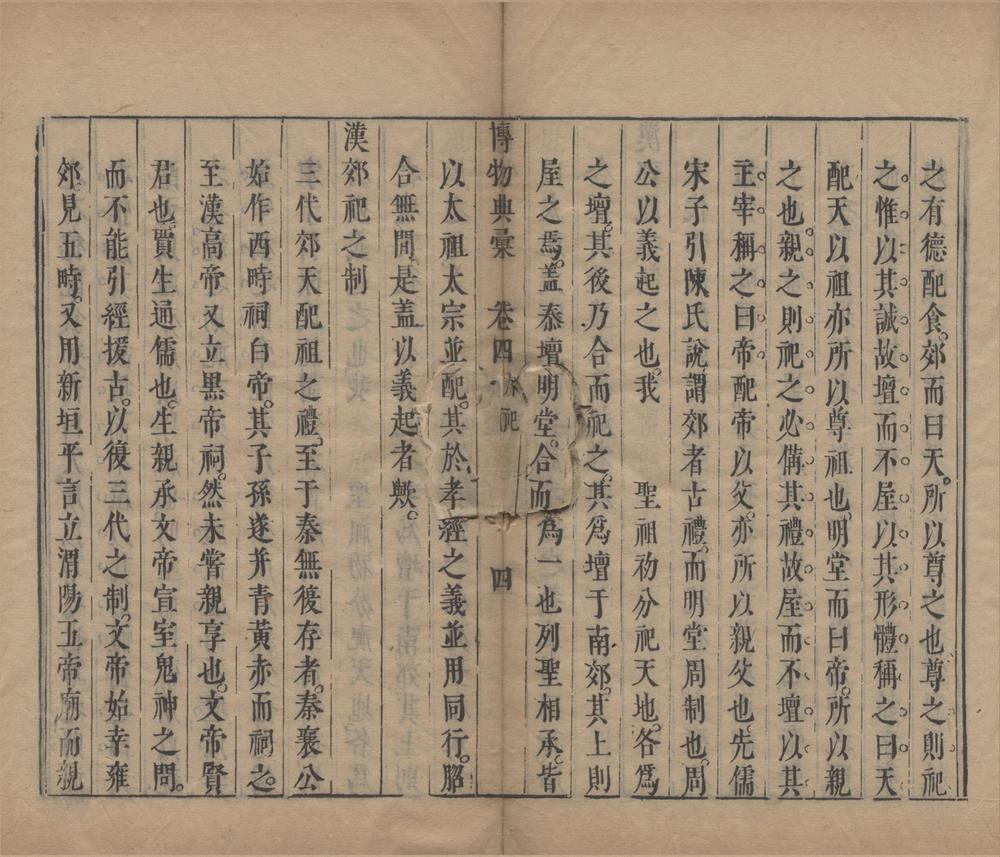 之有德配食郊而曰天所以尊之也尊之則祀
之惟以其誠故壇而不屋以其形體稱之曰天
配天以祖亦所以尊祖也明堂而曰帝所以親
之也親之則祀之必備其禮故屋而不壇以其
主宰稱之曰帝配帝以父亦所以親父也先儒
宋子引陳氏說謂郊者古禮而明堂周制也周
公以義起之也我 聖祖初分祀天地各為
之壇其後乃合而祀之其為壇于南郊其上則
屋之焉蓋泰壇明堂合而為一也列聖相承皆
博物典彙 卷四 郊祀 四
以太祖太宗並配其於孝經之義並用同行脗
合無間是蓋以義起者歟
漢郊祀之制
三代郊天配祖之禮至于秦無復存者秦襄公
始作西畤祠白帝其子孫遂并青黃赤而祠之
至漢高帝又立黑帝祠然未嘗親享也文帝賢
君也賈生通儒也生親承文帝宣室鬼神之問
而不能引經援古以復三代之制文帝始幸雍
郊見五畤又用新垣平言立渭陽五帝廟而親